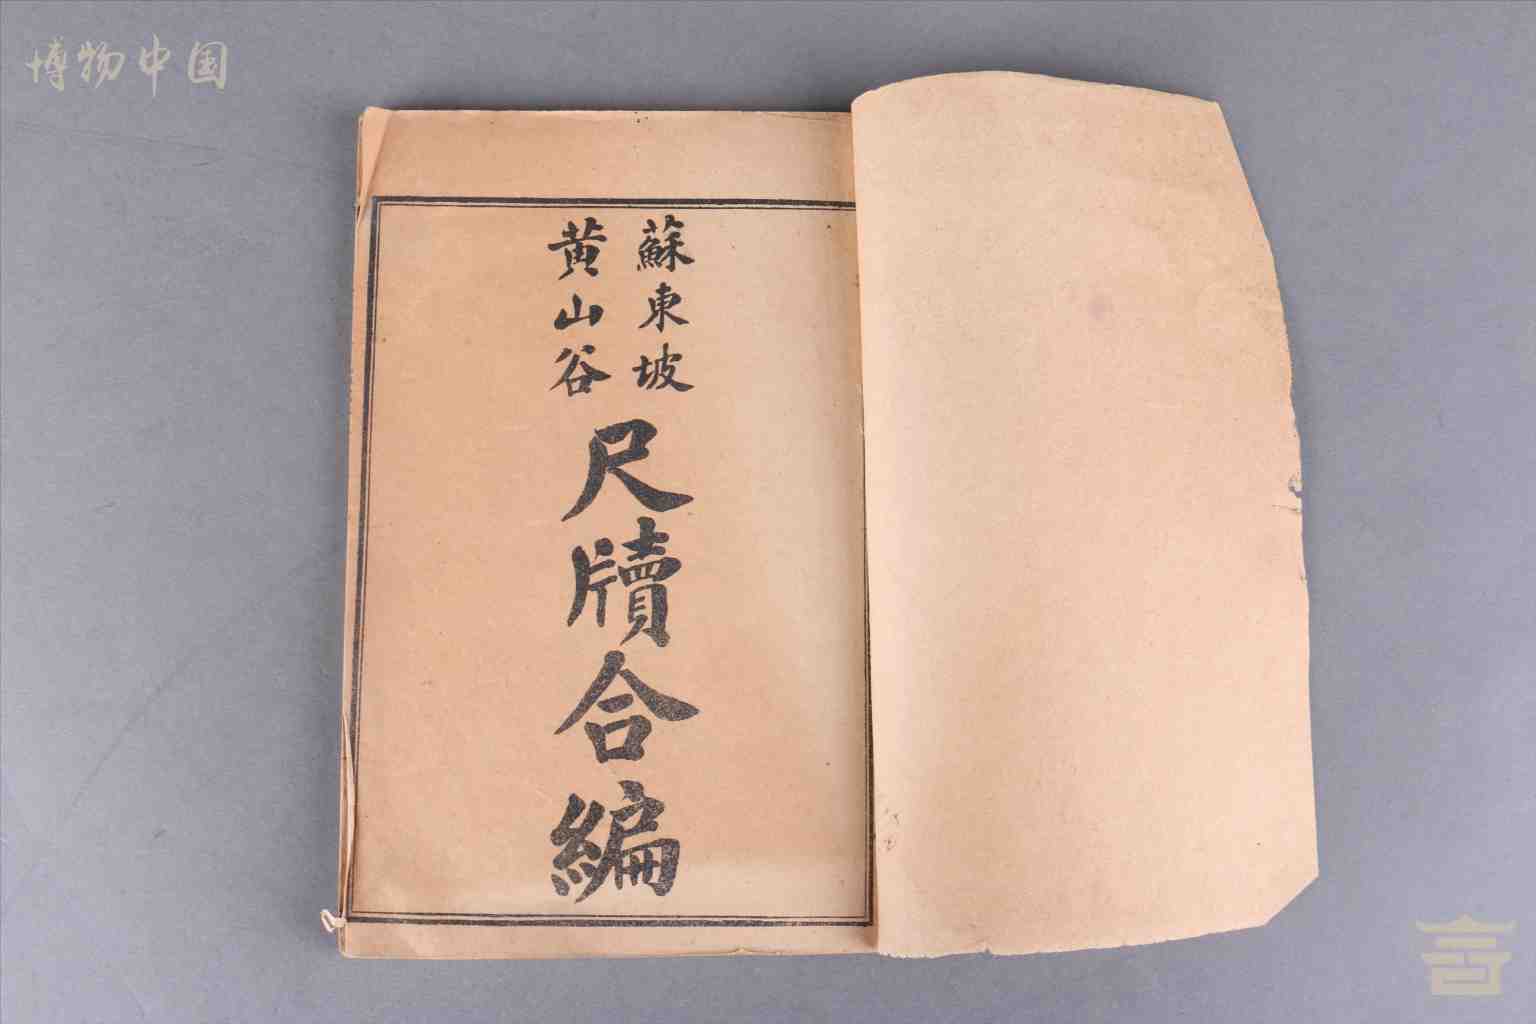 博物中国
蘇東坡
黄山谷
尺牘合編